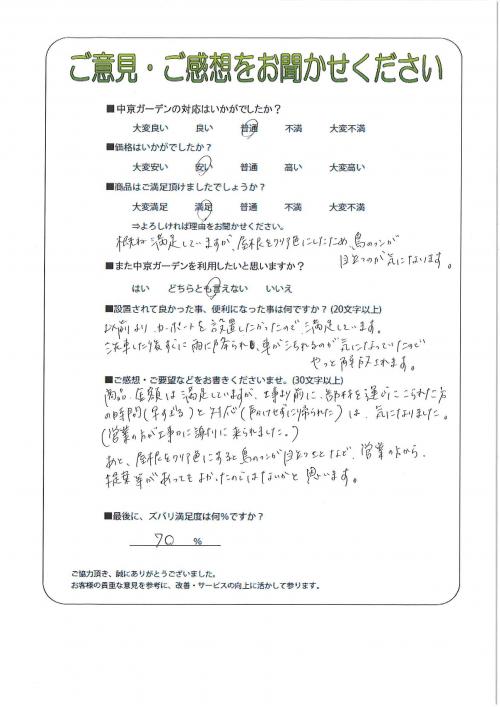 ご意見・ご感想をお聞かせください
■中京ガーデンの対応はいかがでしたか？
大変良い 良い 普通 不満 大変不満
■価格はいかがでしたか？
大変安い 安い 普通 高い 大変高い
■商品はご満足頂けましたでしょうか？
大変満足 満足 普通 不満 大変不満
⇒よろしければ理由をお聞かせください。
概ね満足していますが、屋根をクリア色にしたため、鳥のフンが
目立つのが気になります。
■また中京ガーデンを利用したいと思いますか？
はい どちらとも言えない いいえ
■設置されて良かった事、便利になった事は何ですか？(20文字以上)
以前より、カーポートを設置したかったので、満足しています。
洗車した後すぐに雨に降られ、車がよごれるのが気になっていたので
やっと解放されます。
■ご感想・ご要望などをお書きくださいませ。(30文字以上)
商品、金額は満足していますが、工事より前に、部材を運びにこられた方
の時間(早すぎる)と対応(声かけせずに帰られた)は、気になりました。
(営業の方が工事日に謝りに来られました。)
あと、屋根をクリア色にすると鳥のフンが目立つことなど、営業の方から、
提案等があってもよかったのではないかと思います。
■最後に、ズバリ満足度は何%ですか？
70 %
ご協力頂き、誠にありがとうございました。
お客様の貴重な意見を参考に、改善・サービスの向上に活かして参ります。